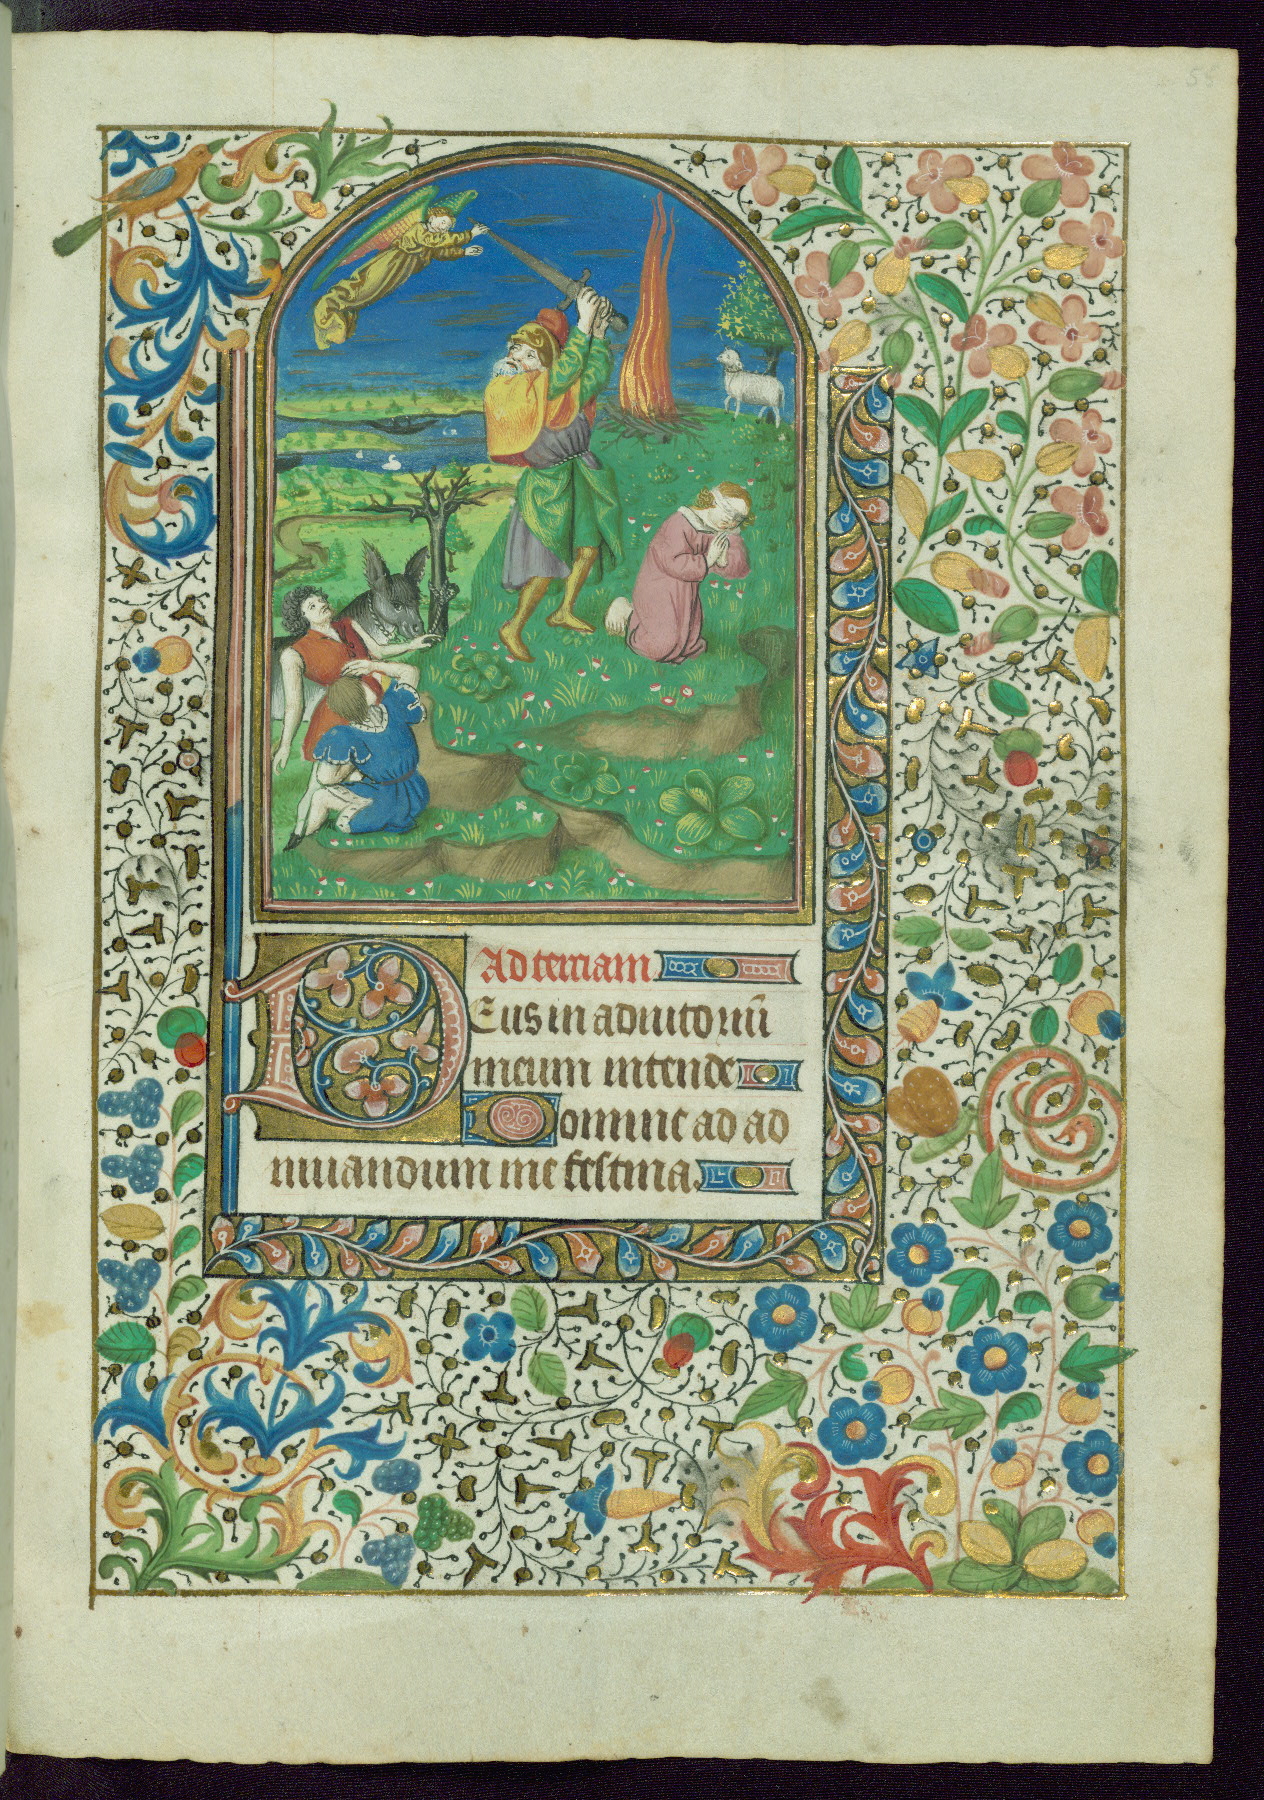 Ad terciam
Deus in adiutoriu̅
meum intende
Domine ad ad
iuuandum me festina